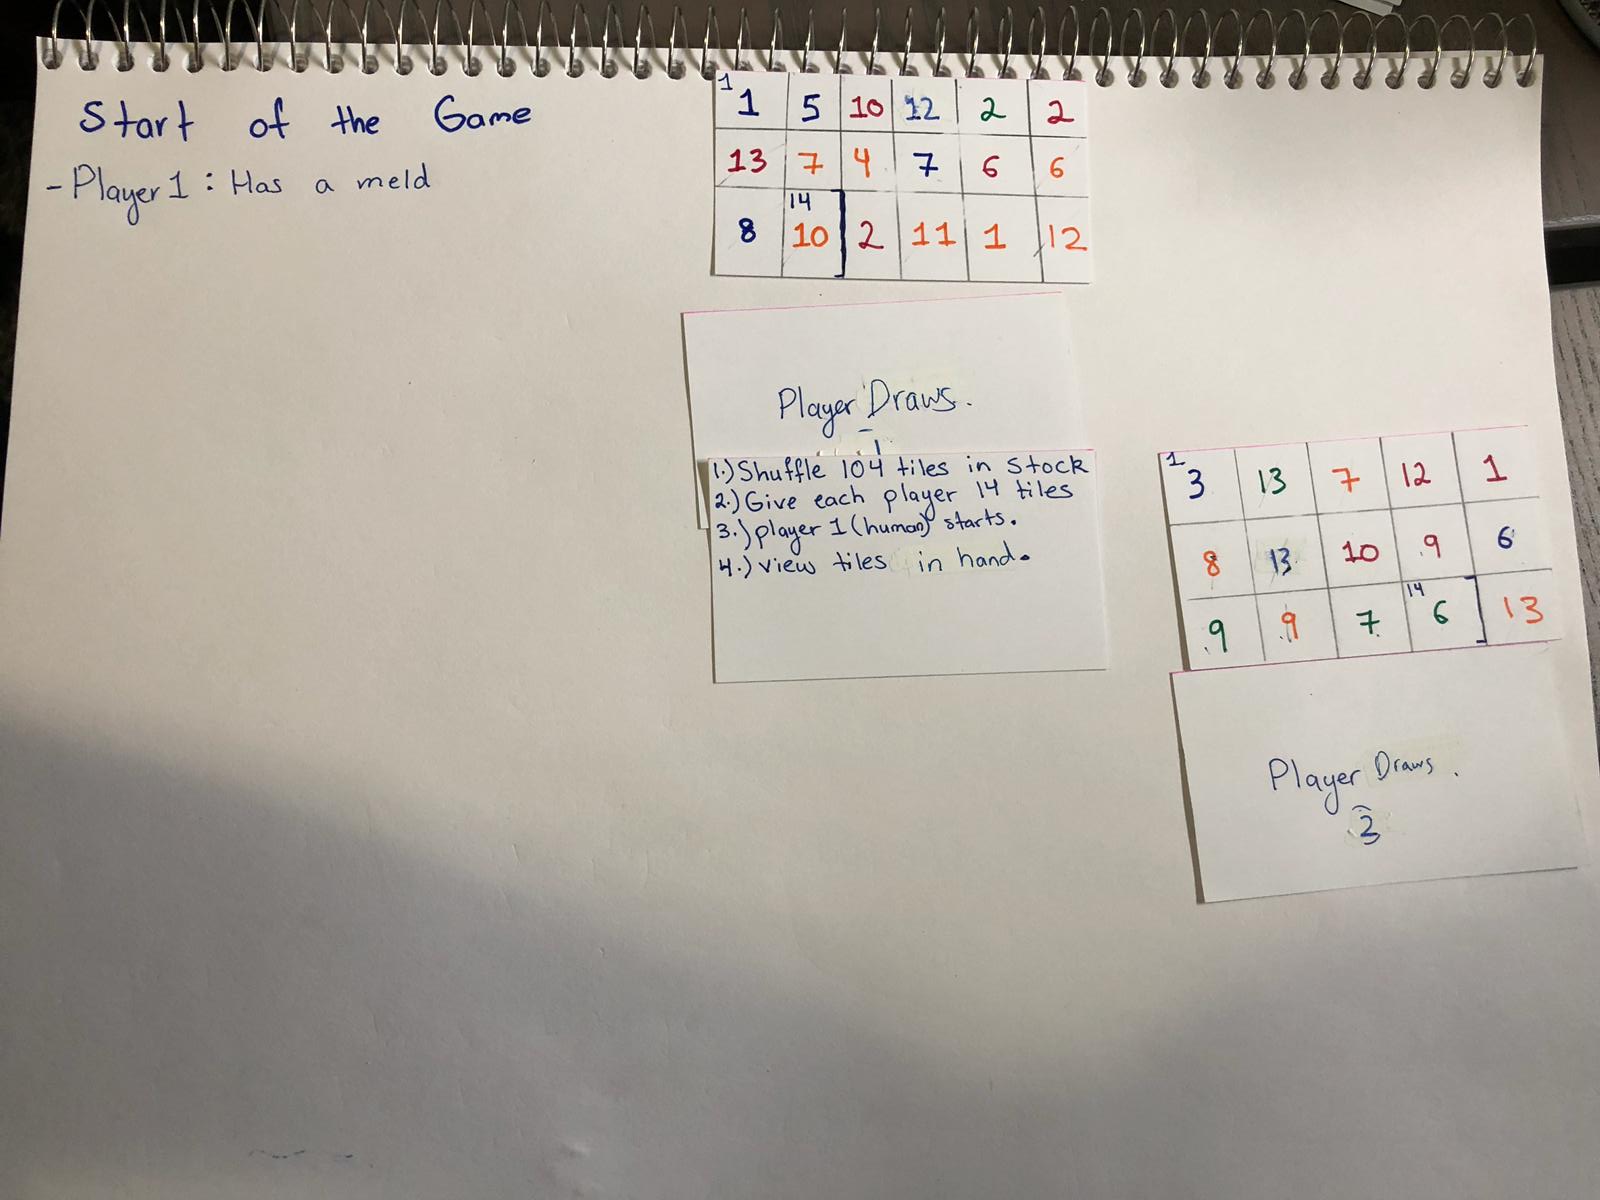 Start of the Game
- Player 1 : Has a meld
1
1 5 10 12 2 2
13 7 4 7 6 6
14
8 10 ] 2 11 1 12
Player Draws.
1
1.) Shuffle 104 tiles in stock
2.) Give each player 14 tiles
3.) player 1 (human) starts.
4.) view tiles in hand.
1
3 13 7 12 1
8 13 10 9 6
14
9 9 7 6 ] 13
Player Draws.
2